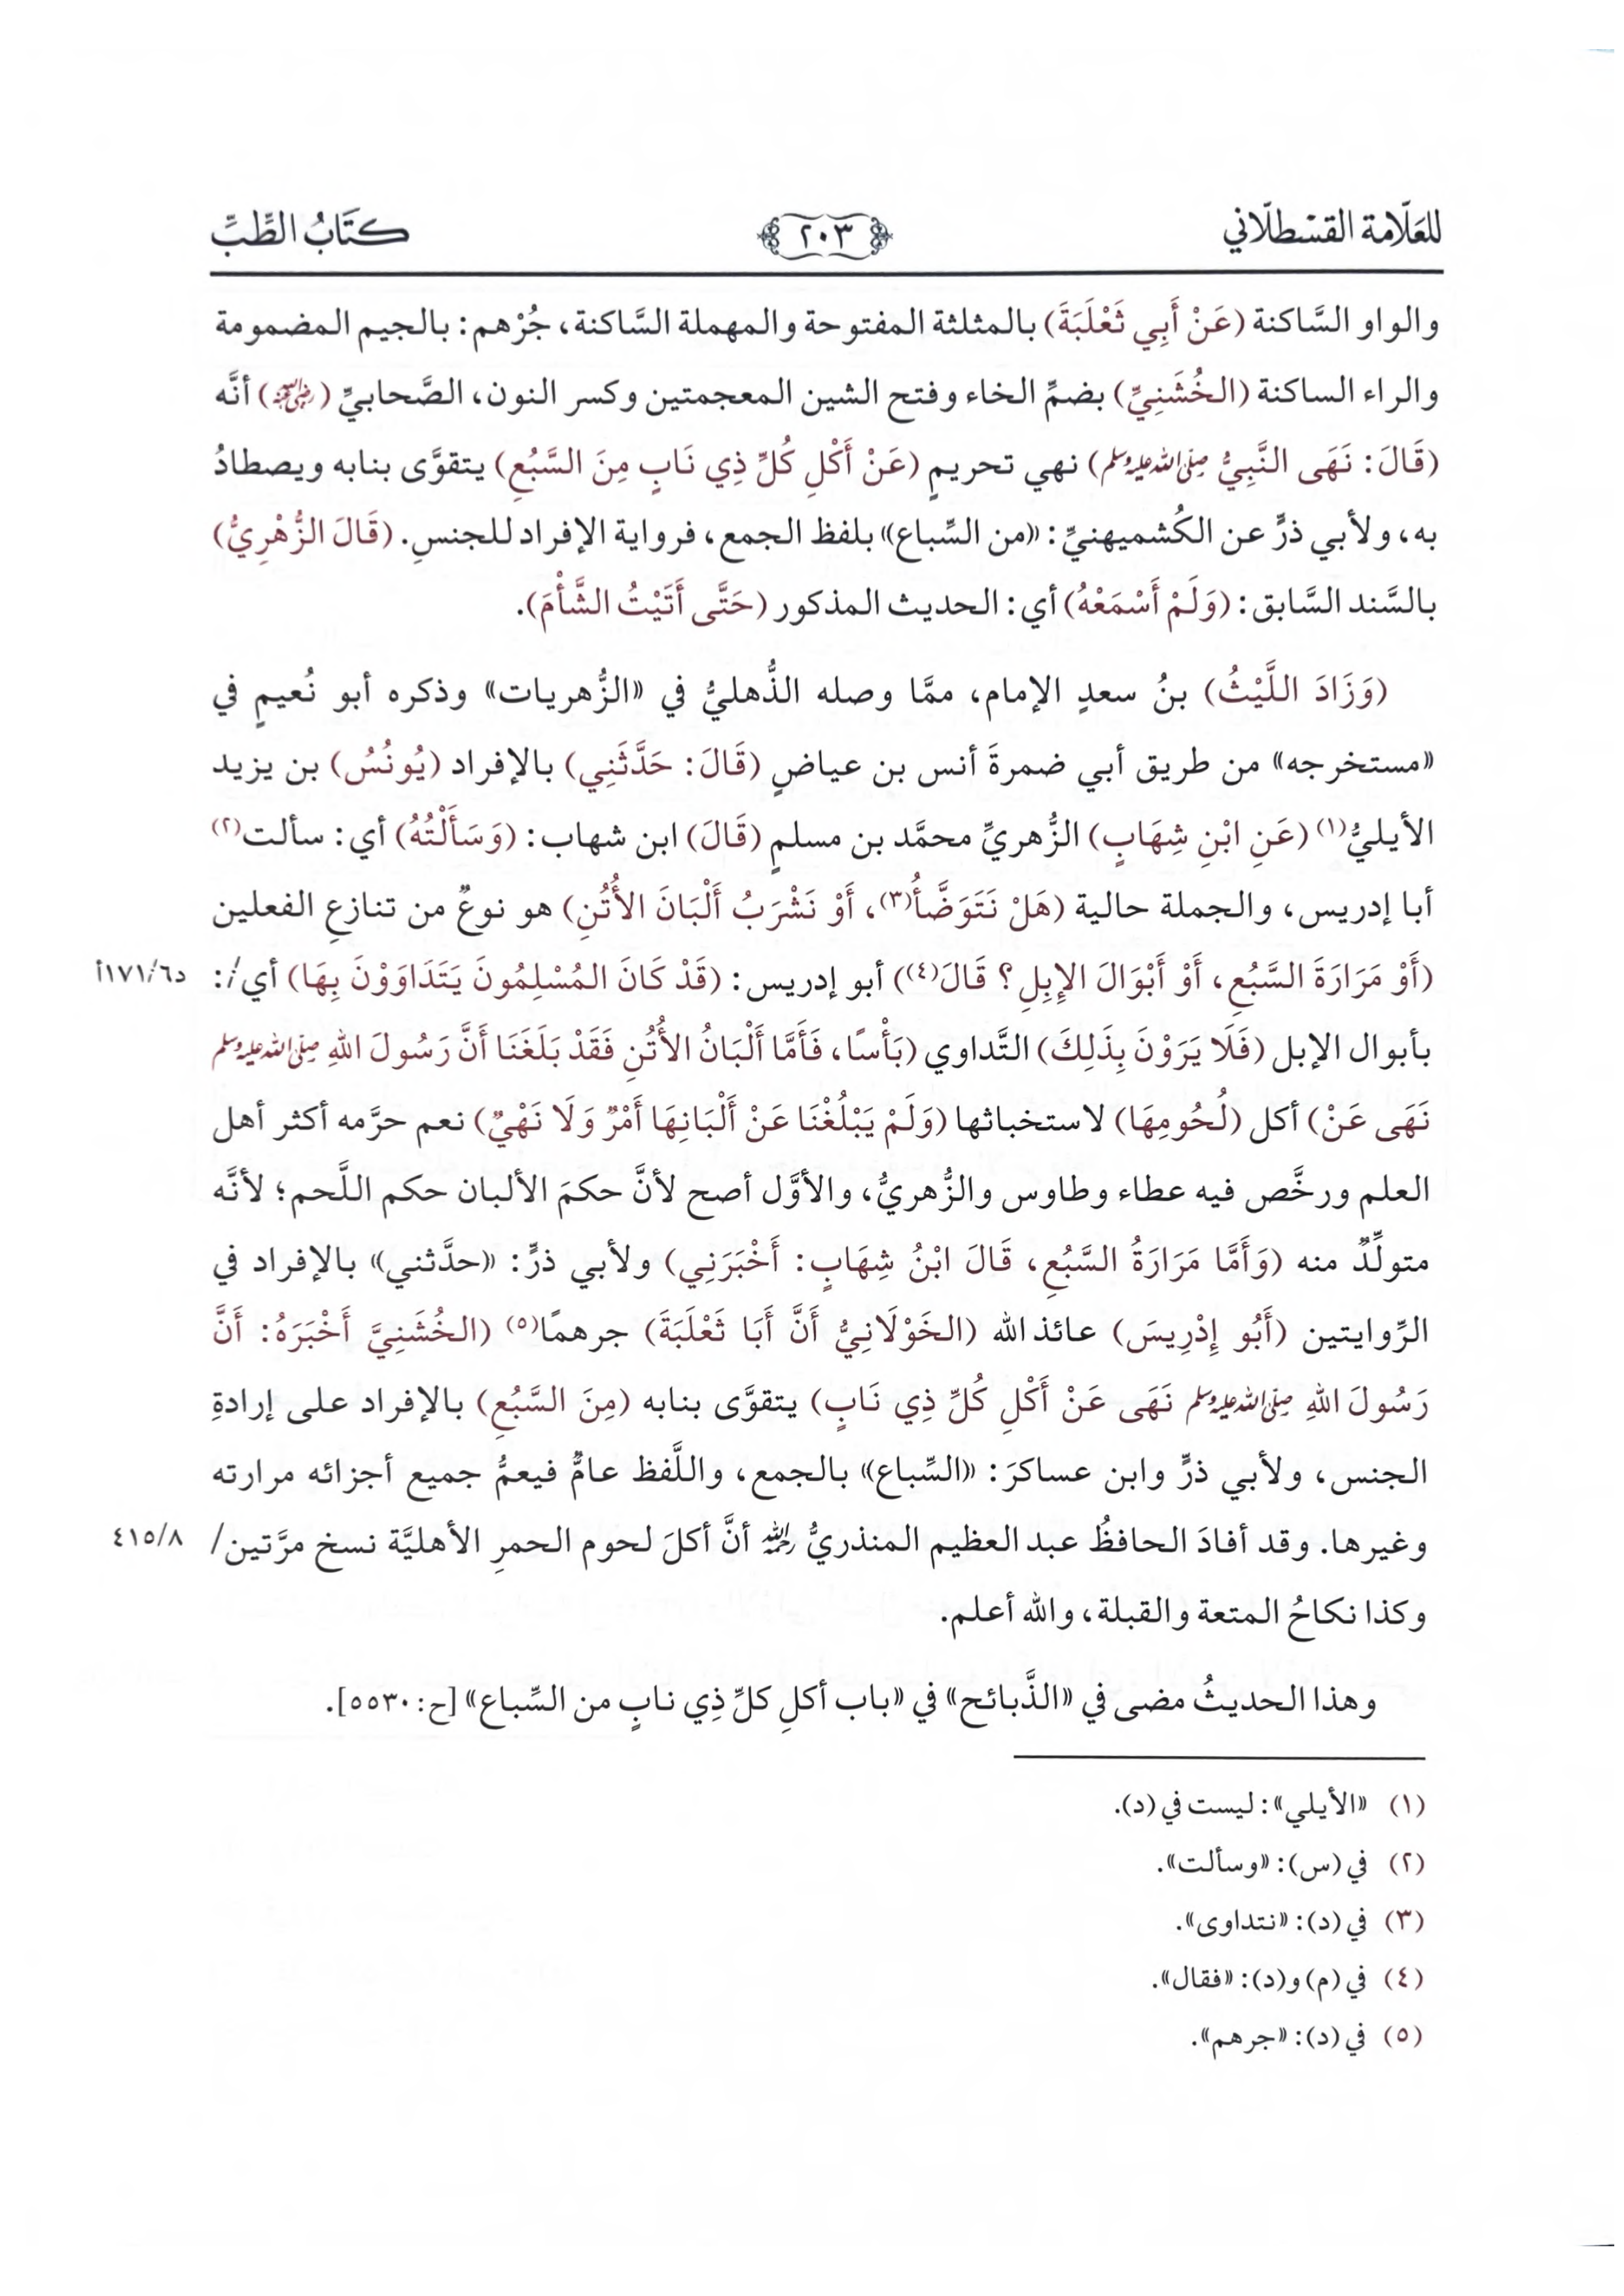 للعلّامة القسطلاني
٢٠٣
كتَابُ الطِّبِّ
والواو السَّاكنة (عَنْ أَبِي ثَعْلَبَةَ) بالمثلثة المفتوحة والمهملة السَّاكنة، جُرْهم: بالجيم المضمومة
والراء الساكنة (الخُشَنِيِّ) بضمِّ الخاء وفتح الشين المعجمتين وكسر النون، الصَّحابيِّ (رضي الله عنه) أنَّه
(قَالَ: نَهَى النَّبِيُّ صلى الله عليه وسلم) نهي تحريمٍ (عَنْ أَكْلِ كُلِّ ذِي نَابٍ مِنَ السَّبُعِ) يتقوَّى بنابه ويصطادُ
به، ولأبي ذرٍّ عن الكُشميهنيِّ: «من السِّباع» بلفظ الجمع، فرواية الإفراد للجنسِ. (قَالَ الزُّهْرِيُّ)
بالسَّند السَّابق: (وَلَمْ أَسْمَعْهُ) أي: الحديث المذكور (حَتَّى أَتَيْتُ الشَّأْمَ).
(وَزَادَ اللَّيْثُ) بنُ سعدٍ الإمام، ممَّا وصله الذُّهليُّ في «الزُّهريات» وذكره أبو نُعيمٍ في
«مستخرجه» من طريق أبي ضمرةَ أنس بن عياضٍ (قَالَ: حَدَّثَنِي) بالإفراد (يُونُسُ) بن يزيد
الأيليُّ(١) (عَنِ ابْنِ شِهَابٍ) الزُّهريِّ محمَّد بن مسلمٍ (قَالَ) ابن شهاب: (وَسَأَلْتُهُ) أي: سألت(٢)
أبا إدريس، والجملة حالية (هَلْ نَتَوَضَّأُ(٣)، أَوْ نَشْرَبُ أَلْبَانَ الأُتُنِ) هو نوعٌ من تنازعِ الفعلين
(أَوْ مَرَارَةَ السَّبُعِ، أَوْ أَبْوَالَ الإِبِلِ؟ قَالَ(٤)) أبو إدريس: (قَدْ كَانَ المُسْلِمُونَ يَتَدَاوَوْنَ بِهَا) أي/: د٦/١٧١أ
بأبوال الإبل (فَلَا يَرَوْنَ بِذَلِكَ) التَّداوي (بَأْسًا، فَأَمَّا أَلْبَانُ الأُتُنِ فَقَدْ بَلَغَنَا أَنَّ رَسُولَ اللهِ صلى الله عليه وسلم
نَهَى عَنْ) أكل (لُحُومِهَا) لاستخباثها (وَلَمْ يَبْلُغْنَا عَنْ أَلْبَانِهَا أَمْرٌ وَلَا نَهْيٌ) نعم حرَّمه أكثر أهل
العلم ورخَّص فيه عطاء وطاوس والزُّهريُّ، والأوَّل أصح لأنَّ حكمَ الألبان حكم اللَّحم؛ لأنَّه
متولِّدٌ منه (وَأَمَّا مَرَارَةُ السَّبُعِ، قَالَ ابْنُ شِهَابٍ: أَخْبَرَنِي) ولأبي ذرٍّ: «حدَّثني» بالإفراد في
الرِّوايتين (أَبُو إِدْرِيسَ) عائذ الله (الخَوْلَانِيُّ أَنَّ أَبَا ثَعْلَبَةَ) جرهمًا(٥) (الخُشَنِيَّ أَخْبَرَهُ: أَنَّ
رَسُولَ اللهِ صلى الله عليه وسلم نَهَى عَنْ أَكْلِ كُلِّ ذِي نَابٍ) يتقوَّى بنابه (مِنَ السَّبُعِ) بالإفراد على إرادةِ
الجنس، ولأبي ذرٍّ وابن عساكرَ: «السِّباع» بالجمع، واللَّفظ عامٌّ فيعمُّ جميع أجزائه مرارته
وغيرها. وقد أفادَ الحافظُ عبد العظيم المنذريُّ رحمه الله أنَّ أكلَ لحوم الحمرِ الأهليَّة نسخ مرَّتين/ ٤١٥/٨
وكذا نكاحُ المتعة والقبلة، والله أعلم.
وهذا الحديثُ مضى في «الذَّبائح» في «باب أكلِ كلِّ ذِي نابٍ من السِّباع» [ح: ٥٥٣٠].
(١) «الأيلي»: ليست في (د).
(٢) في (س): «وسألت».
(٣) في (د): «نتداوى».
(٤) في (م) و(د): «فقال».
(٥) في (د): «جرهم».